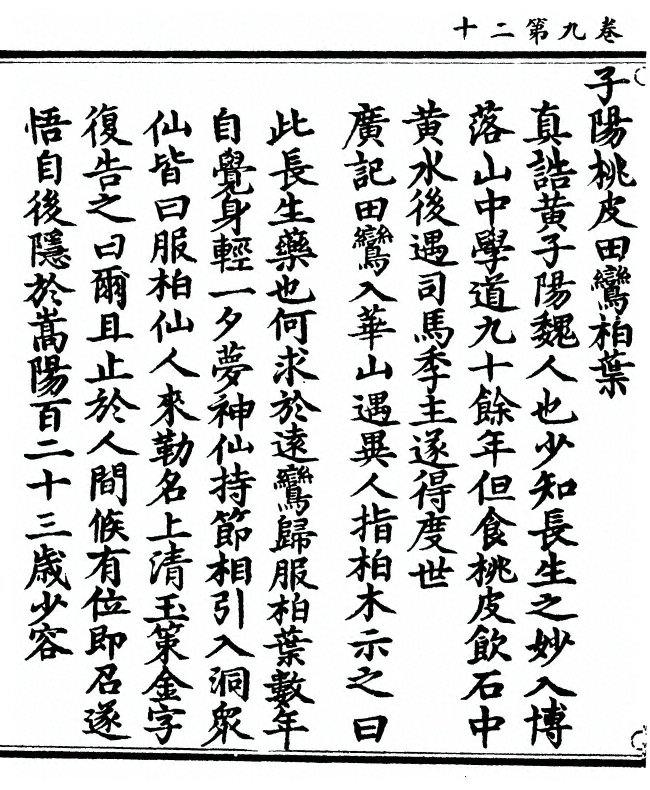 卷九第二十
子陽桃皮田鸞柏葉
真誥黃子陽魏人也少知長生之妙入博
落山中學道九十餘年但食桃皮飲石中
黃水後遇司馬季主遂得度世
廣記田鸞入華山遇異人指柏木示之曰
此長生藥也何求於遠鸞歸服柏葉數年
自覺身輕一夕夢神仙持節相引入洞眾
仙皆曰服柏仙人來勒名上清玉策金字
復告之曰爾且止於人間候有位即召遂
悟自後隱於嵩陽百二十三歲少容